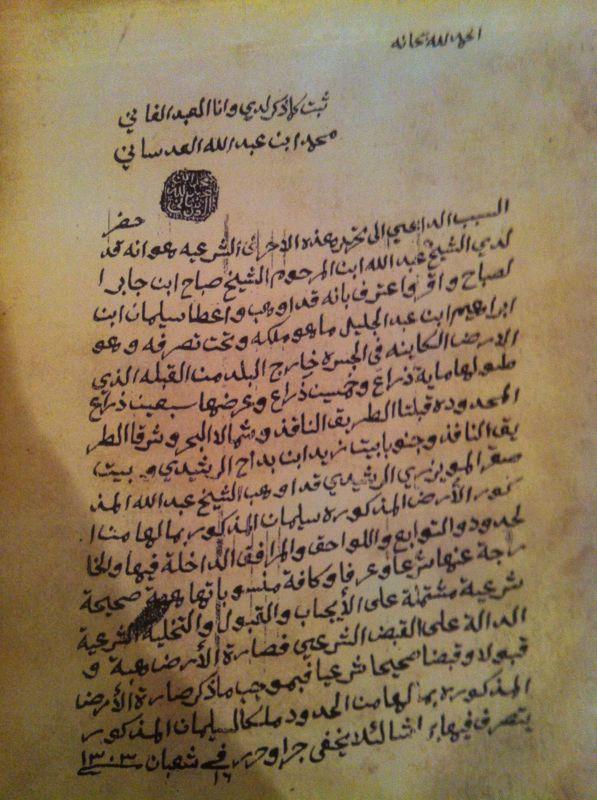 الحمد لله سبحانه
ثبت كلما ذكر لدي وانا العبد الفاني
محمد ابن عبدالله العدساني
السبب الداعي الى تحرير هذه الاحرف الشرعيه هو انه قد حضر
لدي الشيخ عبدالله ابن المرحوم الشيخ صباح ابن جابر ا
لصباح واقر واعترف بانه قد اوهب واعطا سليمان ابن
ابراهيم ابن عبد الجليل ما هو ملكه وتحت تصرفه وهو
الارض الكاينه في الجسره خارج البلد من القبله الذي
طولها ماية ذراع وخمسين ذراع وعرضها سبعين ذراع
المحدوده قبلتا الطريق النافذ وشمالا البحر وشرقا الطر
يق النافذ وجنوبا بيت زيد ابن بداح الرشيدي وبيت
صقر الرشيدي قد اوهب الشيخ عبدالله المذ
كور الأرض المذكوره سليمان المذكور بمالها من ا
لحدود والتوابع واللواحق والمرافق الداخلة فيها والخا
رجة عنها شرعا وعرفا وكافة منسوباتها هبة صحيحة
شرعية مشتملة على الأيجاب والقبول والتخلية الشرعية
الدالة على القبض الشرعي فصارة الأرض هبة و
قبولا وقبضا صحيحا شرعيا فبموجب ما ذكر صارة الأرض
المذكوره بمالها من الحدود ملكا لسليمان المذكور
يتصرف فيها لئلا يخفى جرا وحرر في شعبان ١٣٠٣